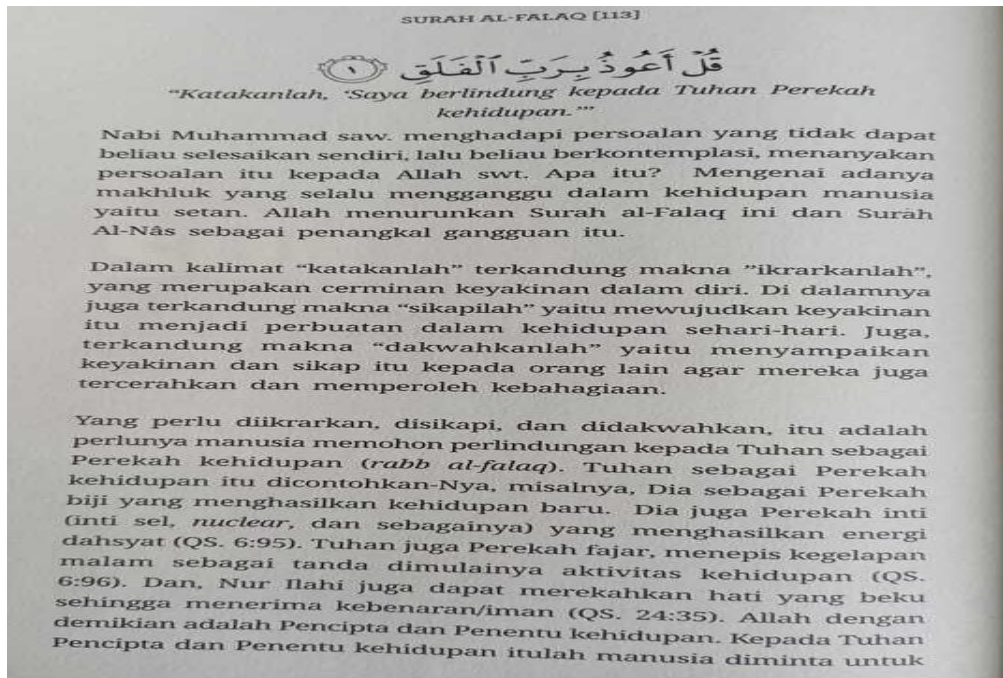 SURAH AL-FALAQ [113]
قُلْ أَعُوذُ بِرَبِّ ٱلْفَلَقِ ١
“Katakanlah, ‘Saya berlindung kepada Tuhan Perekah
kehidupan.’”
Nabi Muhammad saw. menghadapi persoalan yang tidak dapat
beliau selesaikan sendiri, lalu beliau berkontemplasi, menanyakan
persoalan itu kepada Allah swt. Apa itu? Mengenai adanya
makhluk yang selalu mengganggu dalam kehidupan manusia
yaitu setan. Allah menurunkan Surah al-Falaq ini dan Surah
Al-Nâs sebagai penangkal gangguan itu.
Dalam kalimat “katakanlah” terkandung makna ”ikrarkanlah”,
yang merupakan cerminan keyakinan dalam diri. Di dalamnya
juga terkandung makna “sikapilah” yaitu mewujudkan keyakinan
itu menjadi perbuatan dalam kehidupan sehari-hari. Juga,
terkandung makna “dakwahkanlah” yaitu menyampaikan
keyakinan dan sikap itu kepada orang lain agar mereka juga
tercerahkan dan memperoleh kebahagiaan.
Yang perlu diikrarkan, disikapi, dan didakwahkan, itu adalah
perlunya manusia memohon perlindungan kepada Tuhan sebagai
Perekah kehidupan (rabb al-falaq). Tuhan sebagai Perekah
kehidupan itu dicontohkan-Nya, misalnya, Dia sebagai Perekah
biji yang menghasilkan kehidupan baru. Dia juga Perekah inti
(inti sel, nuclear, dan sebagainya) yang menghasilkan energi
dahsyat (QS. 6:95). Tuhan juga Perekah fajar, menepis kegelapan
malam sebagai tanda dimulainya aktivitas kehidupan (QS.
6:96). Dan, Nur Ilahi juga dapat merekahkan hati yang beku
sehingga menerima kebenaran/iman (QS. 24:35). Allah dengan
demikian adalah Pencipta dan Penentu kehidupan. Kepada Tuhan
Pencipta dan Penentu kehidupan itulah manusia diminta untuk